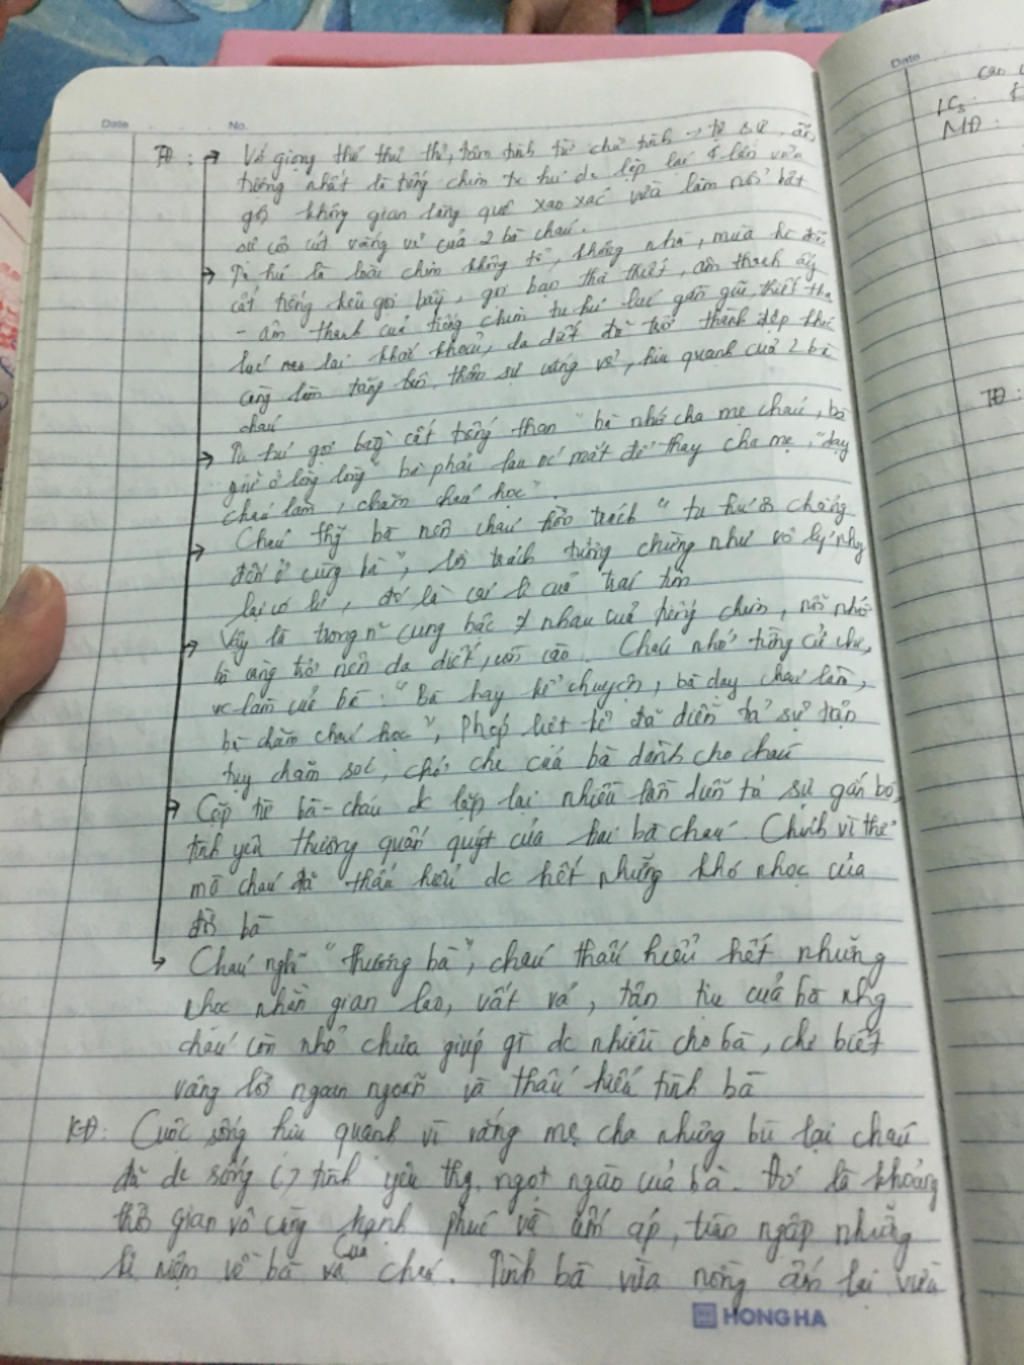 Date No.
TĐ: → Với giọng thơ thủ thỉ, tâm tình từ chữ tình → tự sự, ấn
tượng nhất là tiếng chim tu hú dc lặp lại 4 lần vừa
gợi không gian làng quê xao xác vừa làm nổi bật
sự cô cút vắng vẻ của 2 bà cháu.
→ Tu hú là loài chim không tổ, không nhà, mùa hè đến
cất tiếng kêu gọi bầy, gọi bạn tha thiết, âm thanh ấy
- âm thanh của tiếng chim tu hú lúc gần gũi, thiết tha
lúc lại khắc khoải, da diết để trở thành điệp khúc
càng làm tăng thêm sự vắng vẻ, hiu quanh của 2 bà
cháu
→ Tu hú gọi bầy cất tiếng than " bà nhớ cha mẹ cháu, bà
" bà phải lau nc mắt để "thay cha mẹ", "dạy
cháu làm, chăm cháu học".
→ Cháu thg bà nên cháu hờn trách " tu hú ơi chẳng
đến ở cùng bà", lời trách tưởng chừng như vô lý nhg
lại có lí, đó là cái lí của trái tim
→ Vậy là trong n~ cung bậc ≠ nhau của tiếng chim, nỗi nhớ
bà càng trở nên da diết, cồn cào. Cháu nhớ từng cử chỉ,
vc làm của bà: "Bà hay kể chuyện, bà dạy cháu làm,
bà chăm cháu học", phép liệt kê đã diễn tả sự tận
tụy chăm sóc, chở che của bà dành cho cháu
→ Cặp từ bà - cháu dc lặp lại nhiều lần diễn tả sự gắn bó,
tình yêu thương quấn quýt của hai bà cháu. Chính vì thế
mà cháu đã thấu hiểu dc hết những khó nhọc của
đời bà
→ Cháu nghĩ "thương bà", cháu thấu hiểu hết những
nhọc nhằn gian lao, vất vả, tần tụ của bà nhg
cháu còn nhỏ chưa giúp gì dc nhiều cho bà, chỉ biết
vâng lời ngoan ngoãn và thấu hiểu tình bà
KĐ: Cuộc sống hiu quanh vì vắng mẹ cha nhưng bù lại cháu
đã dc sống () tình yêu thg ngọt ngào của bà. Đó là khoảng
thời gian vô cùng hạnh phúc và ấm áp, tràn ngập những
kỉ niệm về bà và cháu. Tình bà vừa nồng ấm lại vừa
HONG HA
Date
MĐ:
TĐ: